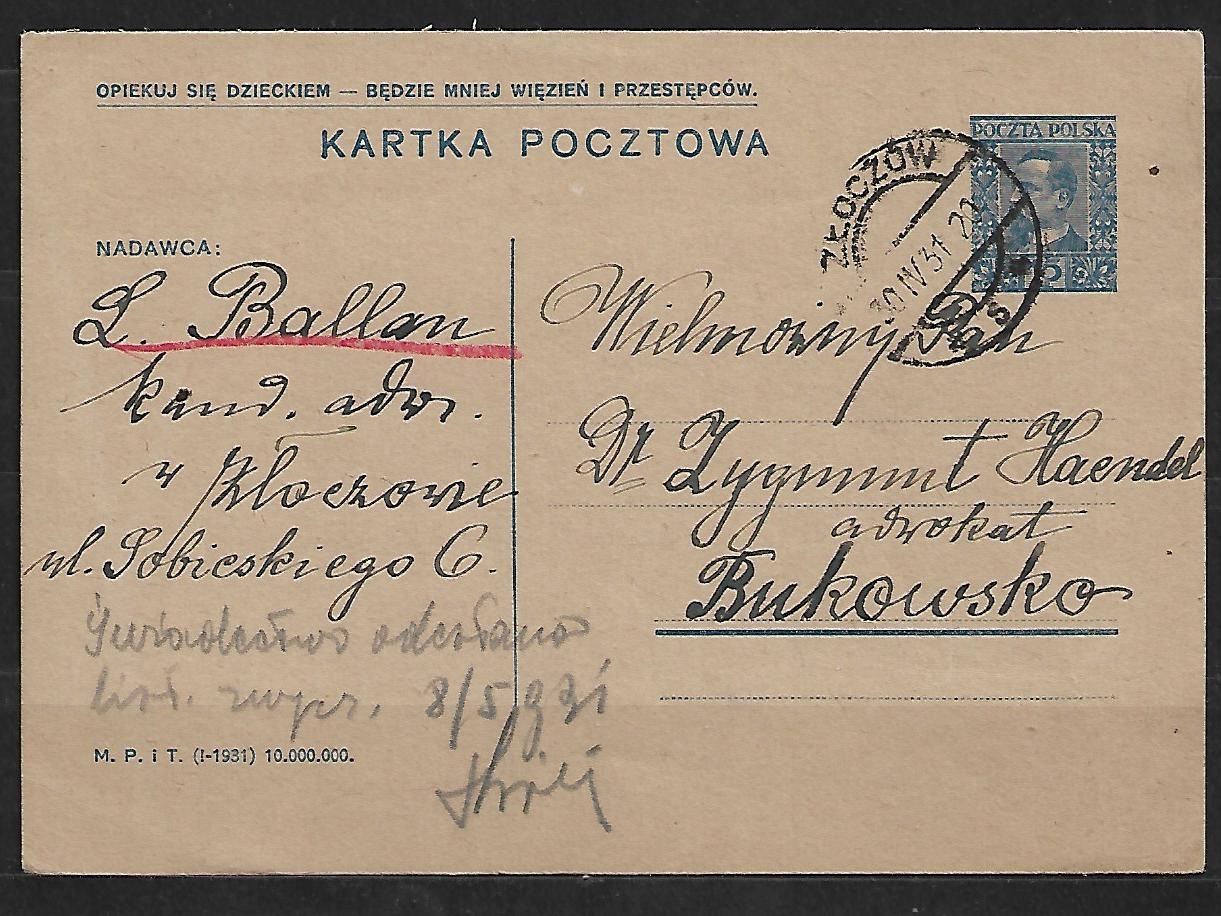 OPIEKUJ SIĘ DZIECKIEM — BĘDZIE MNIEJ WIĘZIEŃ I PRZESTĘPCÓW.
KARTKA POCZTOWA
POCZTA POLSKA
ZŁOCZÓW
IV 31 20
NADAWCA:
L. Ballan
kand. adw.
w Złoczowie
ul. Sobieskiego 6.
Świadectwo odesłano
8/5 931
M. P. i T. (I-1931) 10.000.000.
Wielmożny Pan
Dr Zygmunt Haendel
adwokat
Bukowsko